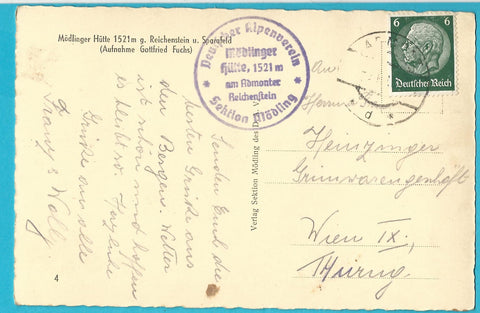 Mödlinger Hütte 1521 m g. Reichenstein u. Sparafeld
(Aufnahme Gottfried Fuchs)
Deutscher Alpenverein
Mödlinger
Hütte, 1521 m
am Admonter
Reichenstein
* Sektion Mödling *
6 6
Deutsches Reich
Senden Euch die
besten Grüße aus
den Bergen. Wetter
ist schön und hoffen
es bleibt so. Herzliche
Grüße an alle
Franz & Wally
4
Verlag Sektion Mödling des D.
An
Wien IX.,